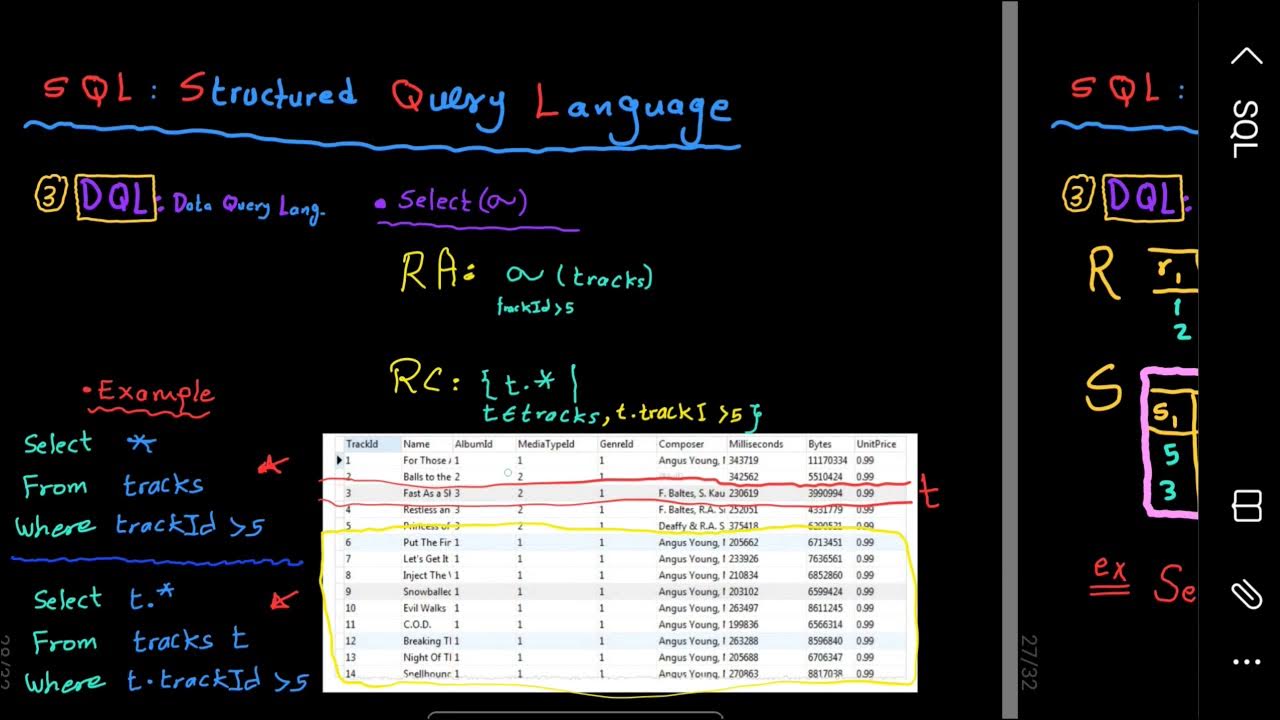 SQL: Structured Query Language
③ DQL: Data Query Lang.
• Select (σ)
RA: σ (tracks)
trackId > 5
RC: { t.* |
t ∈ tracks, t.trackI > 5 }
• Example
Select *
From tracks
Where trackId > 5
Select t.*
From tracks t
Where t.trackId > 5
TrackId Name AlbumId MediaTypeId GenreId Composer Milliseconds Bytes UnitPrice
1 For Those 1 1 1 Angus Young, 343719 11170334 0.99
2 Balls to the 2 2 1 342562 5510424 0.99
3 Fast As a 3 2 1 F. Baltes, S. Kau 230619 3990994 0.99
4 Restless an 3 2 1 F. Baltes, R.A. 252051 4331779 0.99
5 Princess of 3 2 1 Deaffy & R.A. 375418 6290521 0.99
6 Put The Fin 1 1 1 Angus Young, 205662 6713451 0.99
7 Let's Get It 1 1 1 Angus Young, 233926 7636561 0.99
8 Inject The 1 1 1 Angus Young, 210834 6852860 0.99
9 Snowballed 1 1 1 Angus Young, 203102 6599424 0.99
10 Evil Walks 1 1 1 Angus Young, 263497 8611245 0.99
11 C.O.D. 1 1 1 Angus Young, 199836 6566314 0.99
12 Breaking T 1 1 1 Angus Young, 263288 8596840 0.99
13 Night Of T 1 1 1 Angus Young, 205688 6706347 0.99
14 Spellbound 1 1 1 Angus Young, 270863 8817038 0.99
t
SQL:
③ DQL:
R r₁
1
2
S s₁
5
3
ex Se
27/32
SQL